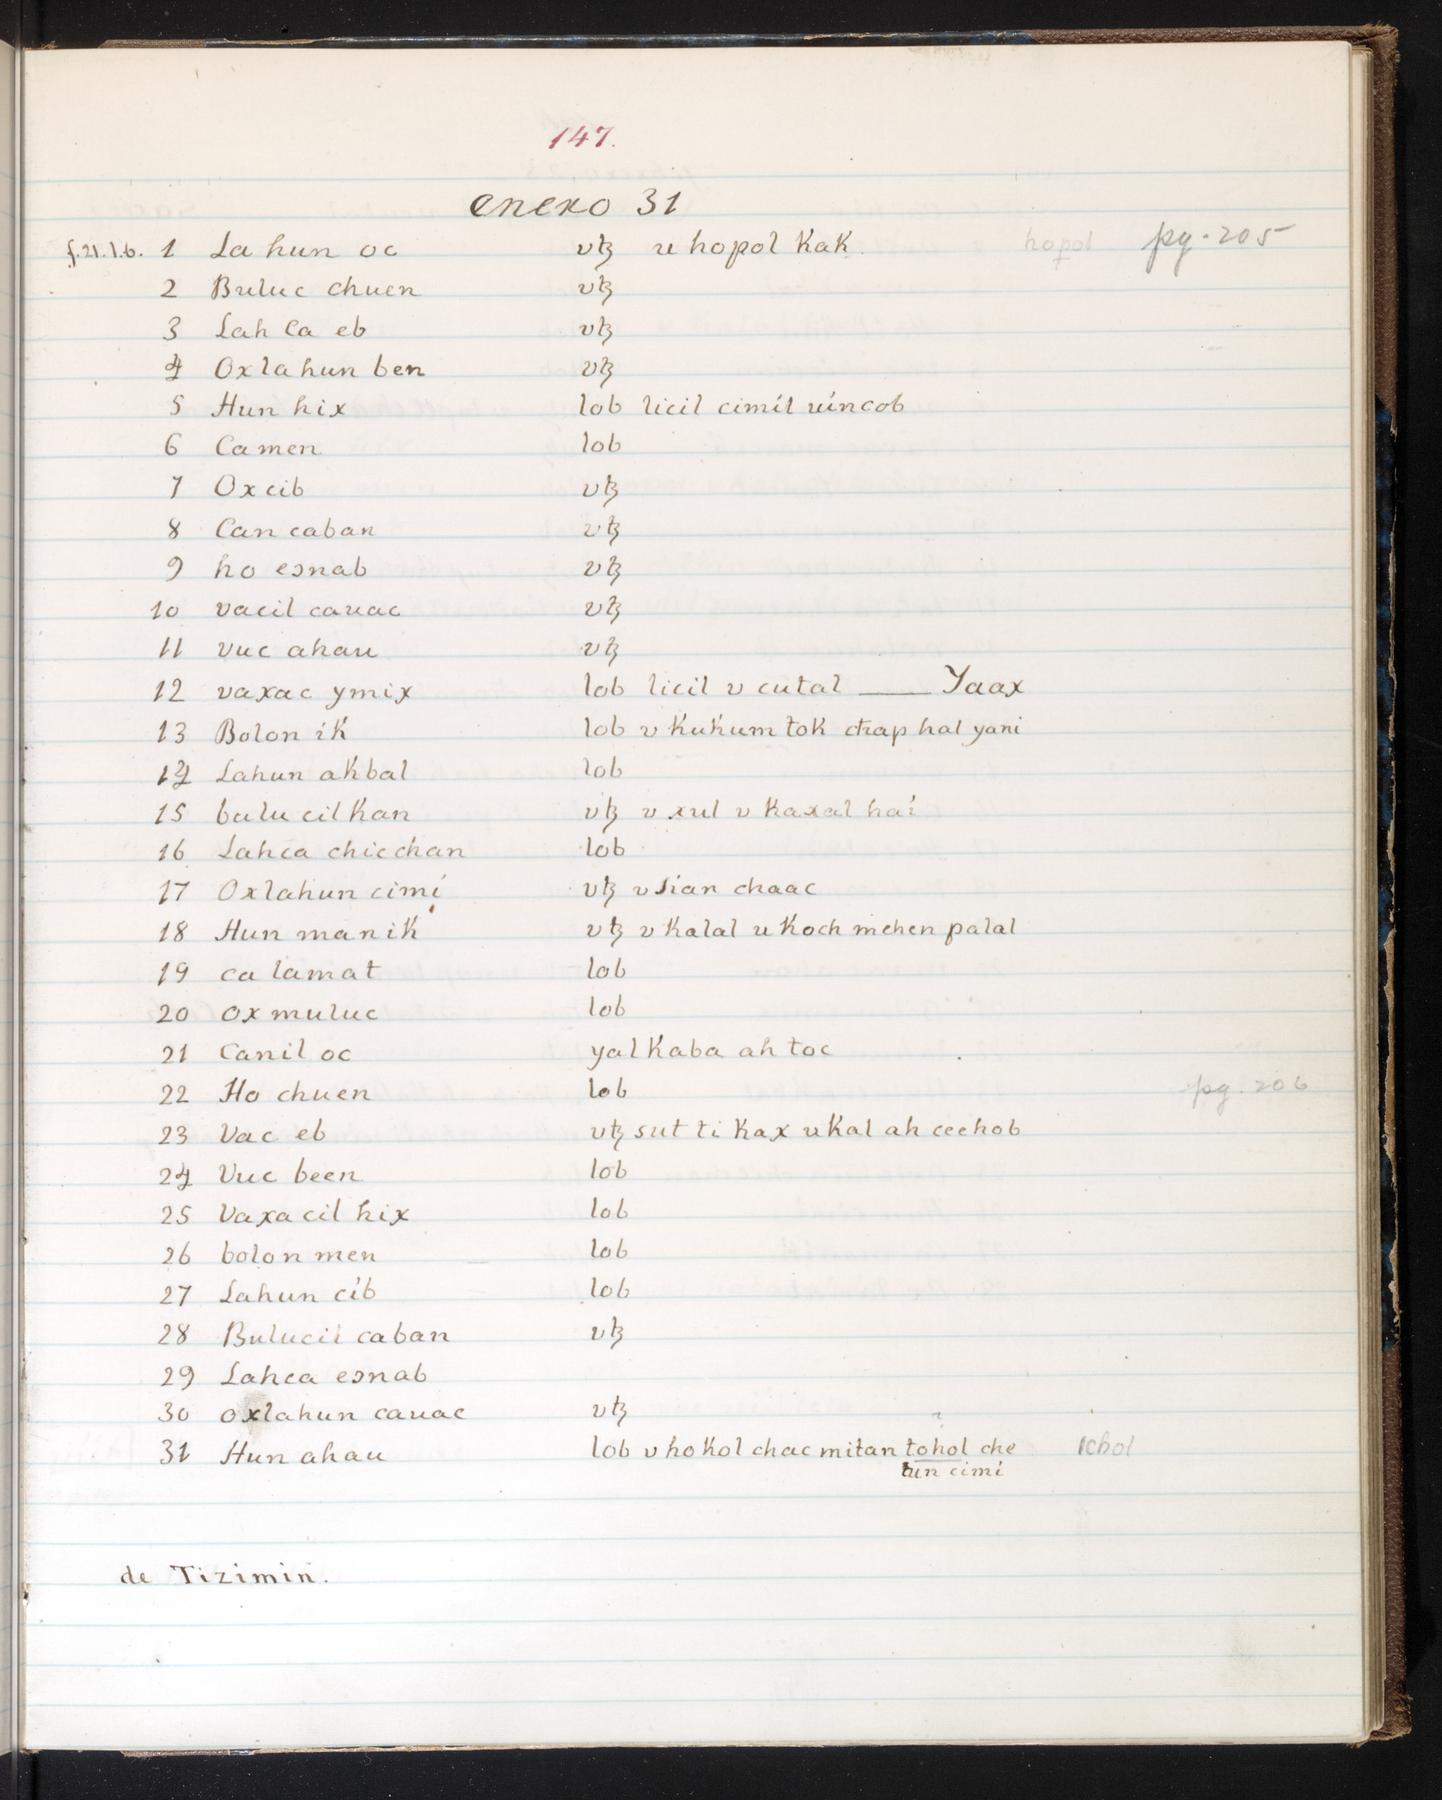 147.
enero 31
f.21.1.b. 1 Lahun oc vꜩ u hopol kak. hopol pg. 205
2 Buluc chuen vꜩ
3 Lah ca eb vꜩ
4 Oxlahun ben vꜩ
5 Hun hix lob licil cimil uincob
6 Ca men lob
7 Ox cib vꜩ
8 Can caban vꜩ
9 ho eɔnab vꜩ
10 vacil cauac vꜩ
11 vuc ahau vꜩ
12 vaxac ymix lob licil v cutal ___ Yaax
13 Bolon ik lob v kukum tok chap hal yani
14 Lahun akbal lob
15 bulu cil kan vꜩ v xul v kaxal hai
16 Lahca chicchan lob
17 Oxlahun cimi vꜩ v sian chaac
18 Hun manik vꜩ v kalal u koch mehen palal
19 ca lamat lob
20 ox muluc lob
21 Canil oc yal kaba ah toc
22 Ho chuen lob pg. 206
23 Vac eb vꜩ sut ti kax u kal ah ceehob
24 Vuc been lob
25 Vaxacil hix lob
26 bolon men lob
27 Lahun cib lob
28 Bulucil caban vꜩ
29 Lahca eɔnab
30 oxlahun cauac vꜩ ?
31 Hun ahau lob v hokol chac mitan tohol che ichol
tun cimi
de Tizimin.